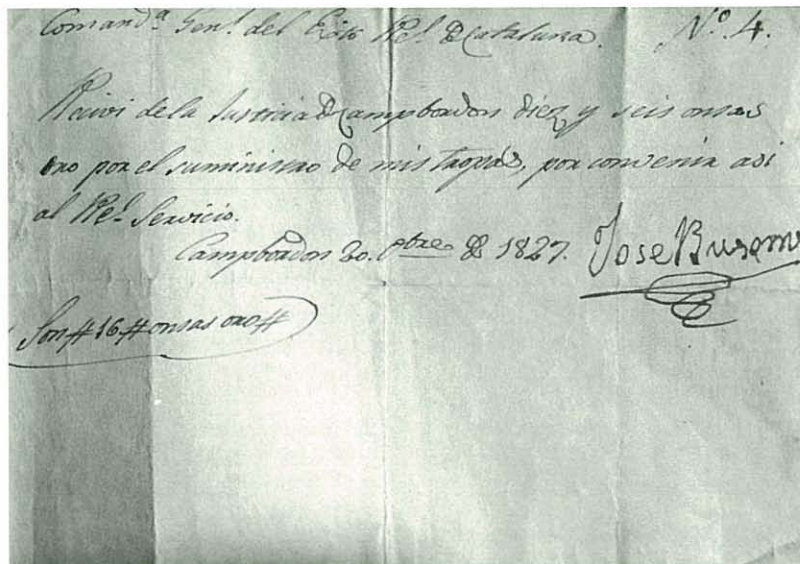 Comand.ª Gen.l del Exto Rel. D Cataluna. Nº. 4.
Reciví de la Justicia D Campbrodon diez y seis onsas
oro por el suministro de mis tropas, por convenir asi
al Rel. Servicio.
Campbrodon 20. bre D 1827. Jose Busoms
Son # 16 # onsas oro #